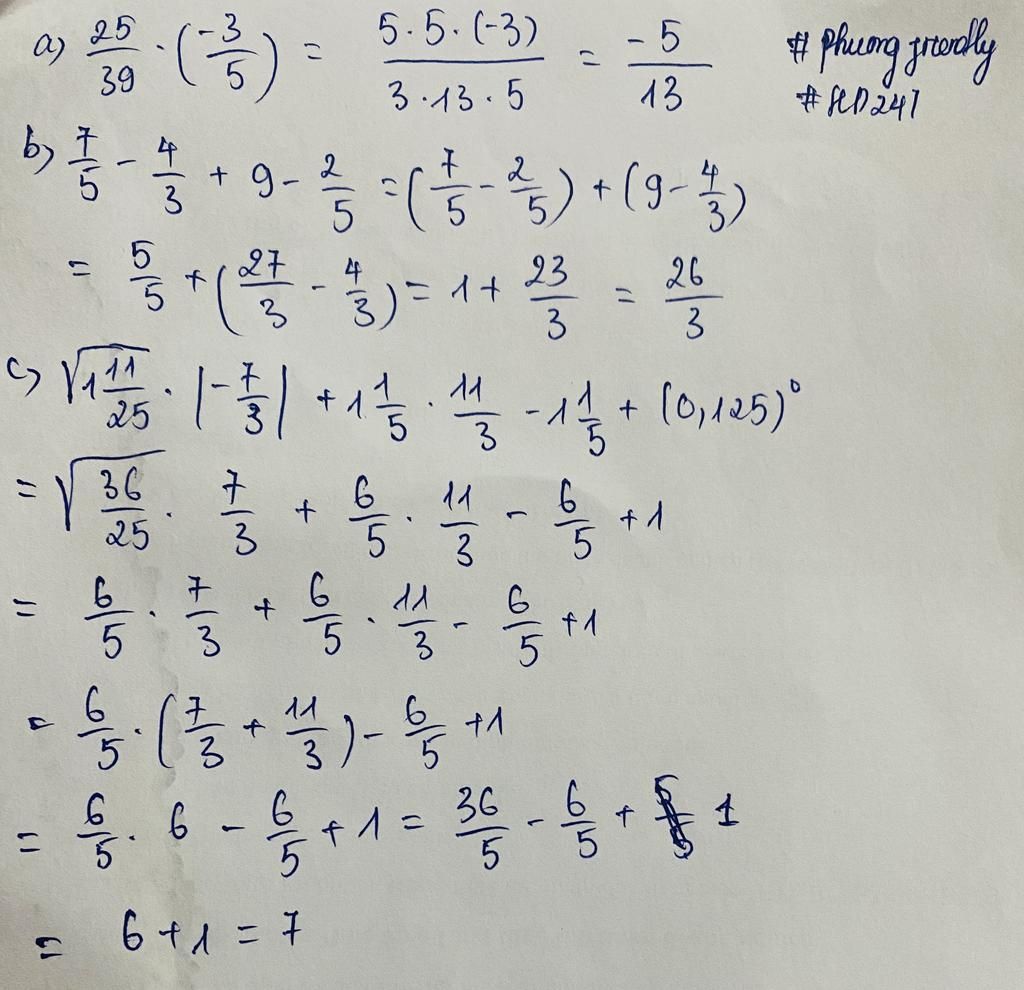 a) 25/39 · (-3/5) = 5·5·(-3)/3·13·5 = -5/13 # phuong friendly
# HD247
b) 7/5 - 4/3 + 9 - 2/5 = (7/5 - 2/5) + (9 - 4/3)
= 5/5 + (27/3 - 4/3) = 1 + 23/3 = 26/3
c) √(1 11/25) · |-7/3| + 1 1/5 · 11/3 - 1 1/5 + (0,125)⁰
= √(36/25) · 7/3 + 6/5 · 11/3 - 6/5 + 1
= 6/5 · 7/3 + 6/5 · 11/3 - 6/5 + 1
= 6/5 · (7/3 + 11/3) - 6/5 + 1
= 6/5 · 6 - 6/5 + 1 = 36/5 - 6/5 + 1
= 6 + 1 = 7